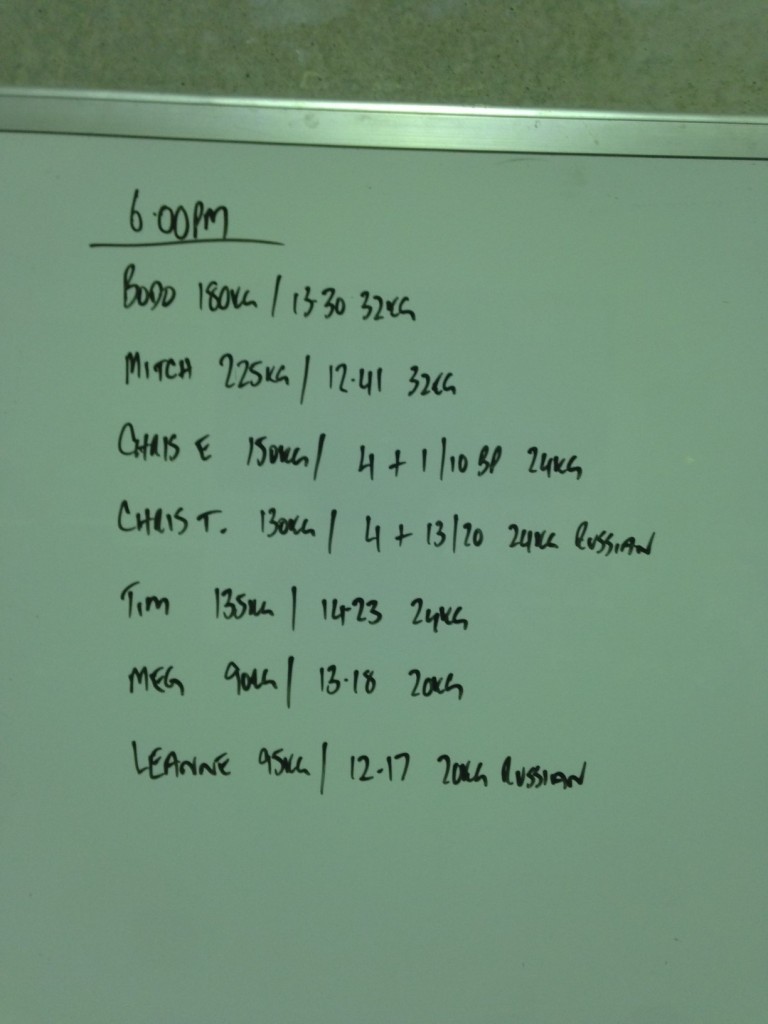 6.00PM
BODO 180KG / 13.30 32KG
MITCH 225KG / 12.41 32KG
CHRIS E 150KG / 4 + 1/10 BP 24KG
CHRIS T. 130KG / 4 + 13/20 24KG RUSSIAN
TIM 135KG / 14.23 24KG
MEG 90KG / 13.18 20KG
LEANNE 95KG / 12.17 20KG RUSSIAN